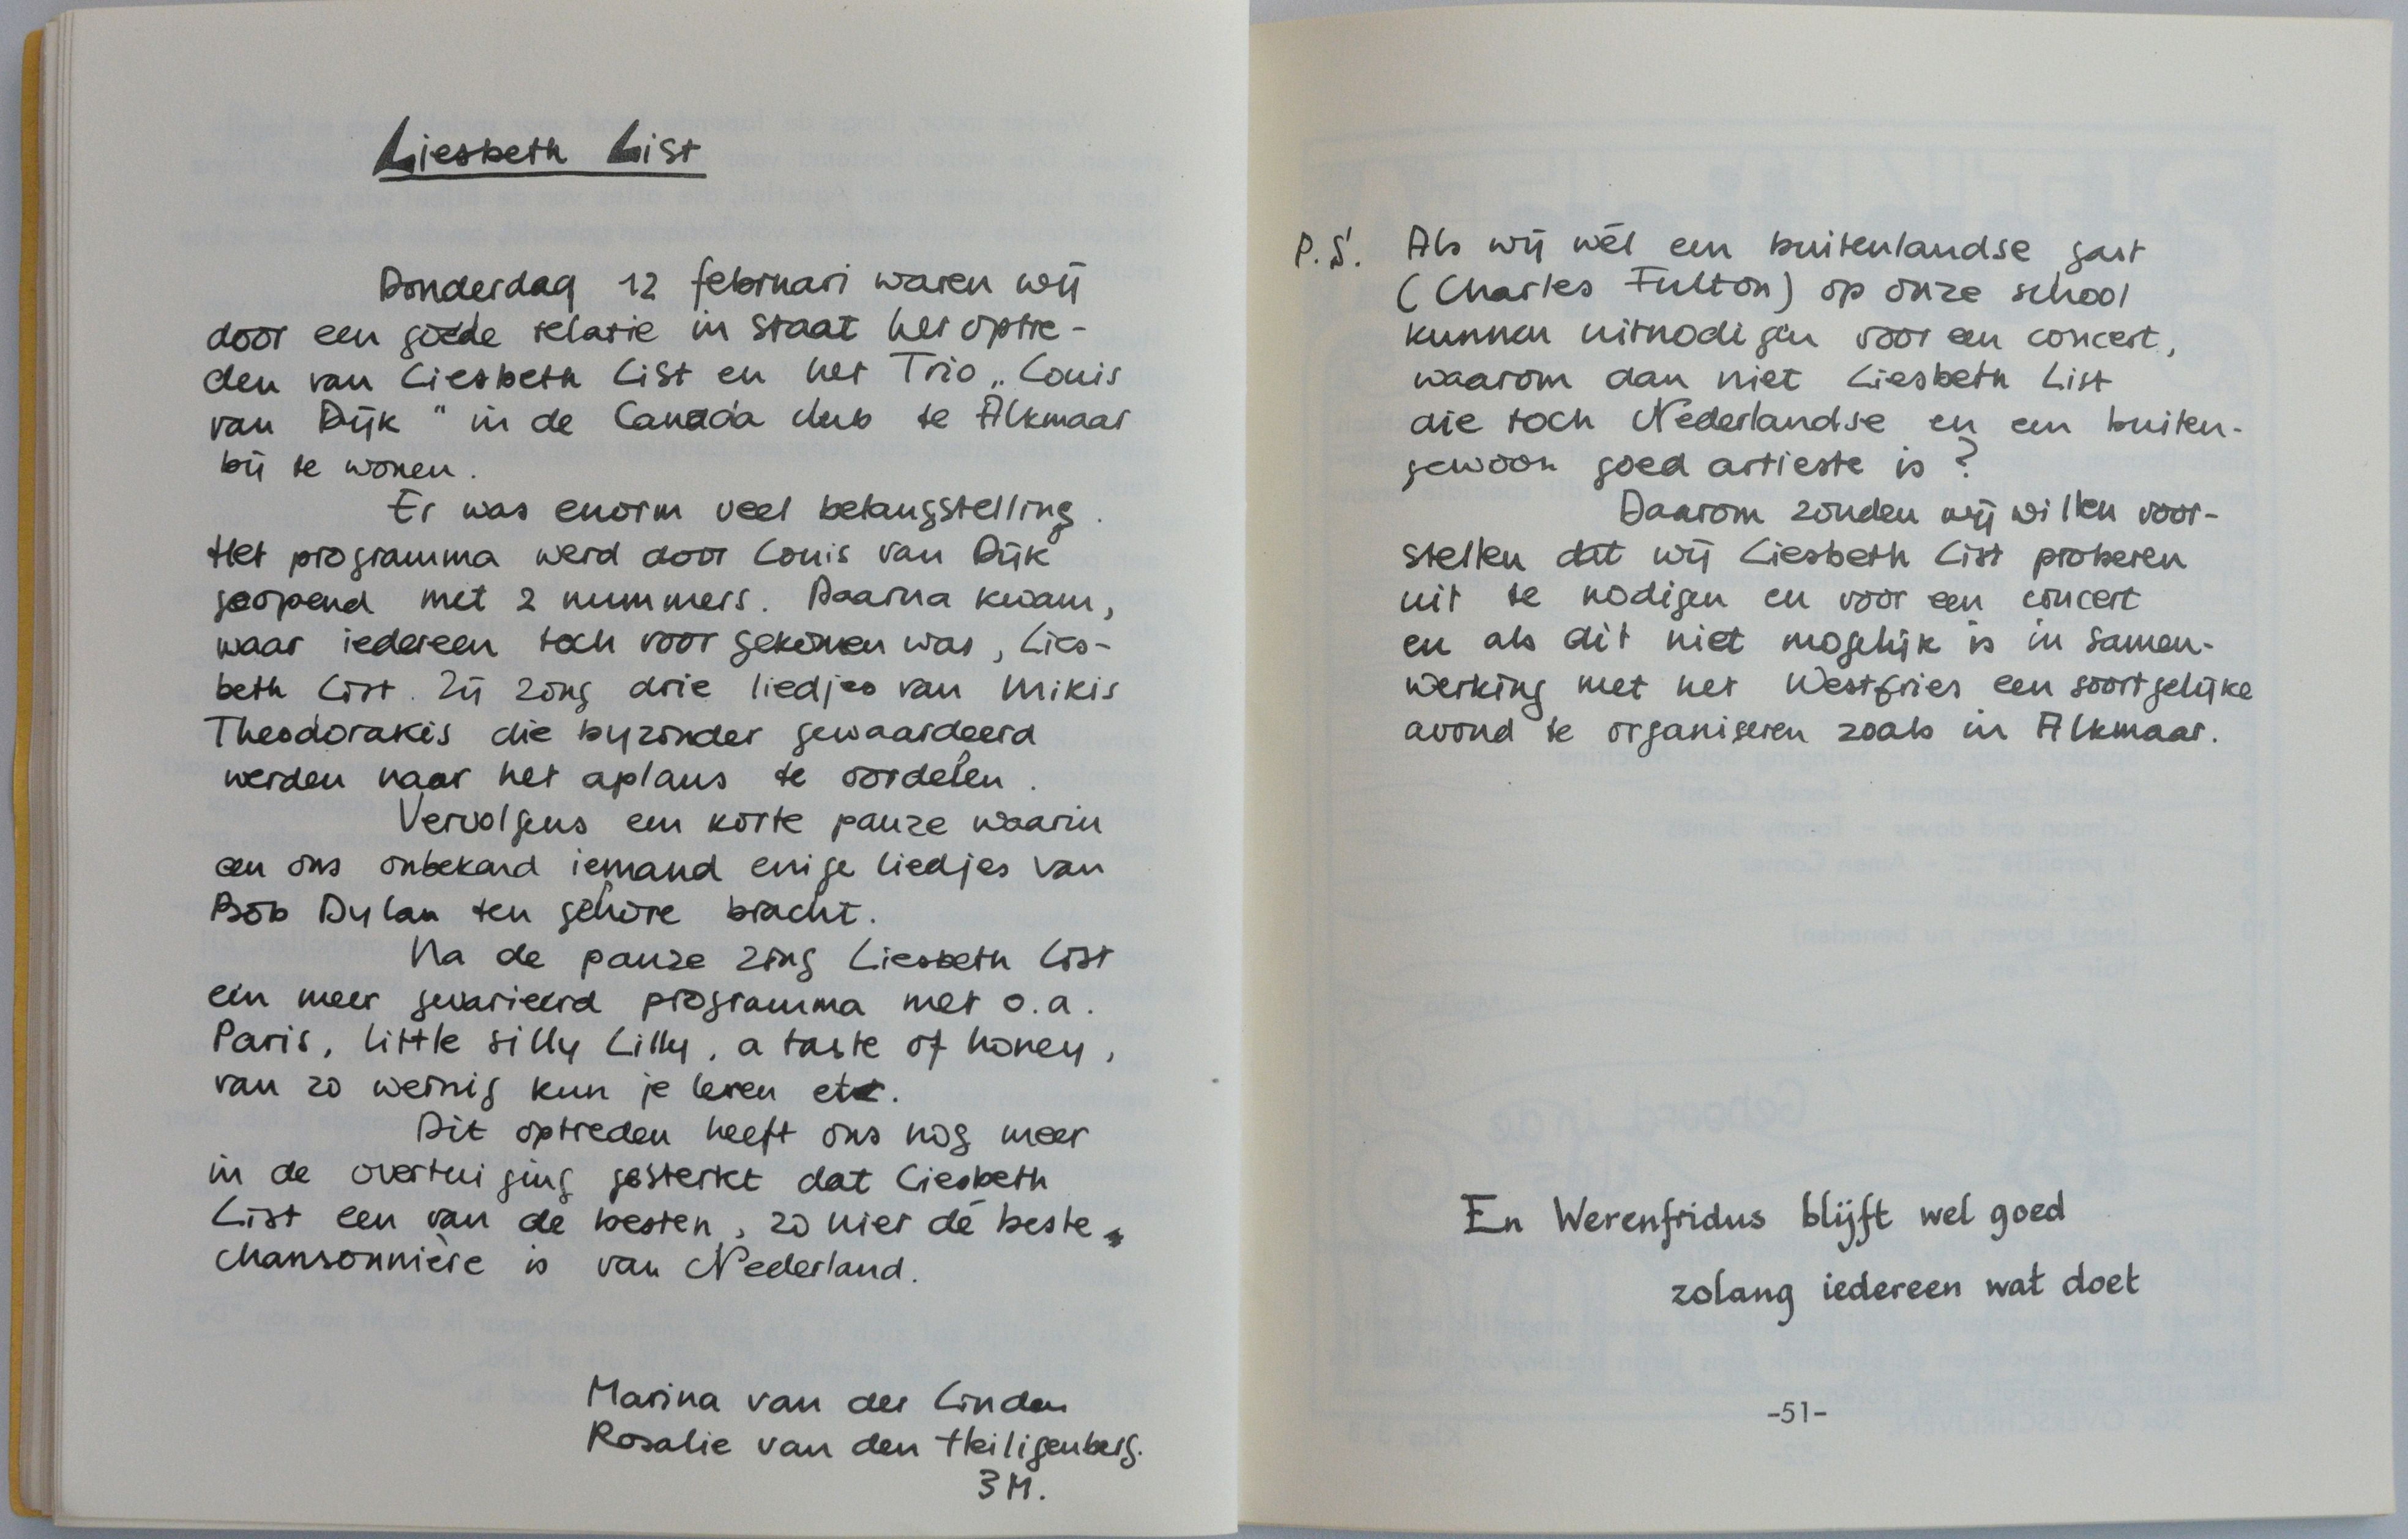 Liesbeth List
Donderdag 12 februari waren wij
door een goede relatie in staat het optre-
den van Liesbeth List en het Trio „Louis
van Dijk" in de Canada club te Alkmaar
bij te wonen.
Er was enorm veel belangstelling.
Het programma werd door Louis van Dijk
geopend met 2 nummers. Daarna kwam,
waar iedereen toch voor gekomen was, Lies-
beth List. Zij zong drie liedjes van Mikis
Theodorakis die byzonder gewaardeerd
werden naar het aplaus te oordelen.
Vervolgens een korte pauze waarin
een ons onbekend iemand enige liedjes van
Bob Dylan ten gehore bracht.
Na de pauze zong Liesbeth List
een meer gevarieerd programma met o.a.
Paris, little silly Lilly, a taste of honey,
van zo weinig kun je leven etc.
Dit optreden heeft ons nog meer
in de overtuiging gesterkt dat Liesbeth
List een van de besten, zo niet dé beste
chansonnière is van Nederland.
Marina van der Linden
Rosalie van den Heiligenberg.
3M.
P.S. Als wij wél een buitenlandse gast
(Charles Fulton) op onze school
kunnen uitnodigen voor een concert,
waarom dan niet Liesbeth List
die toch Nederlandse en een buiten-
gewoon goed artieste is?
Daarom zouden wij willen voor-
stellen dat wij Liesbeth List proberen
uit te nodigen en voor een concert
en als dit niet mogelijk is in samen-
werking met het Westfries een soortgelijke
avond te organiseren zoals in Alkmaar.
En Werenfridus blijft wel goed
zolang iedereen wat doet
-51-